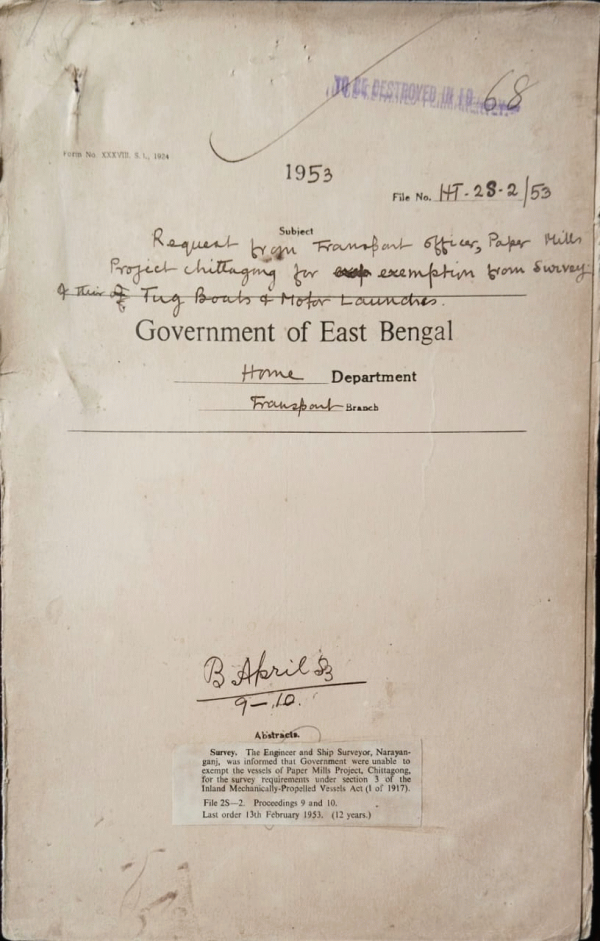 TO BE DESTROYED IN 19 68
Form No. XXXVIII. S. 1., 1924
1953
File No. HT-2S-2/53
Subject
Request from Transport officer, Paper Mills
Project chittagong for exemption from Survey
of their Tug Boats & Motor Launches.
Government of East Bengal
Home Department
Transport Branch
B April 53
9-10.
Abstracts.
Survey. The Engineer and Ship Surveyor, Narayan-
ganj, was informed that Government were unable to
exempt the vessels of Paper Mills Project, Chittagong,
for the survey requirements under section 3 of the
Inland Mechanically-Propelled Vessels Act (1 of 1917).
File 2S—2. Proceedings 9 and 10.
Last order 13th February 1953. (12 years.)